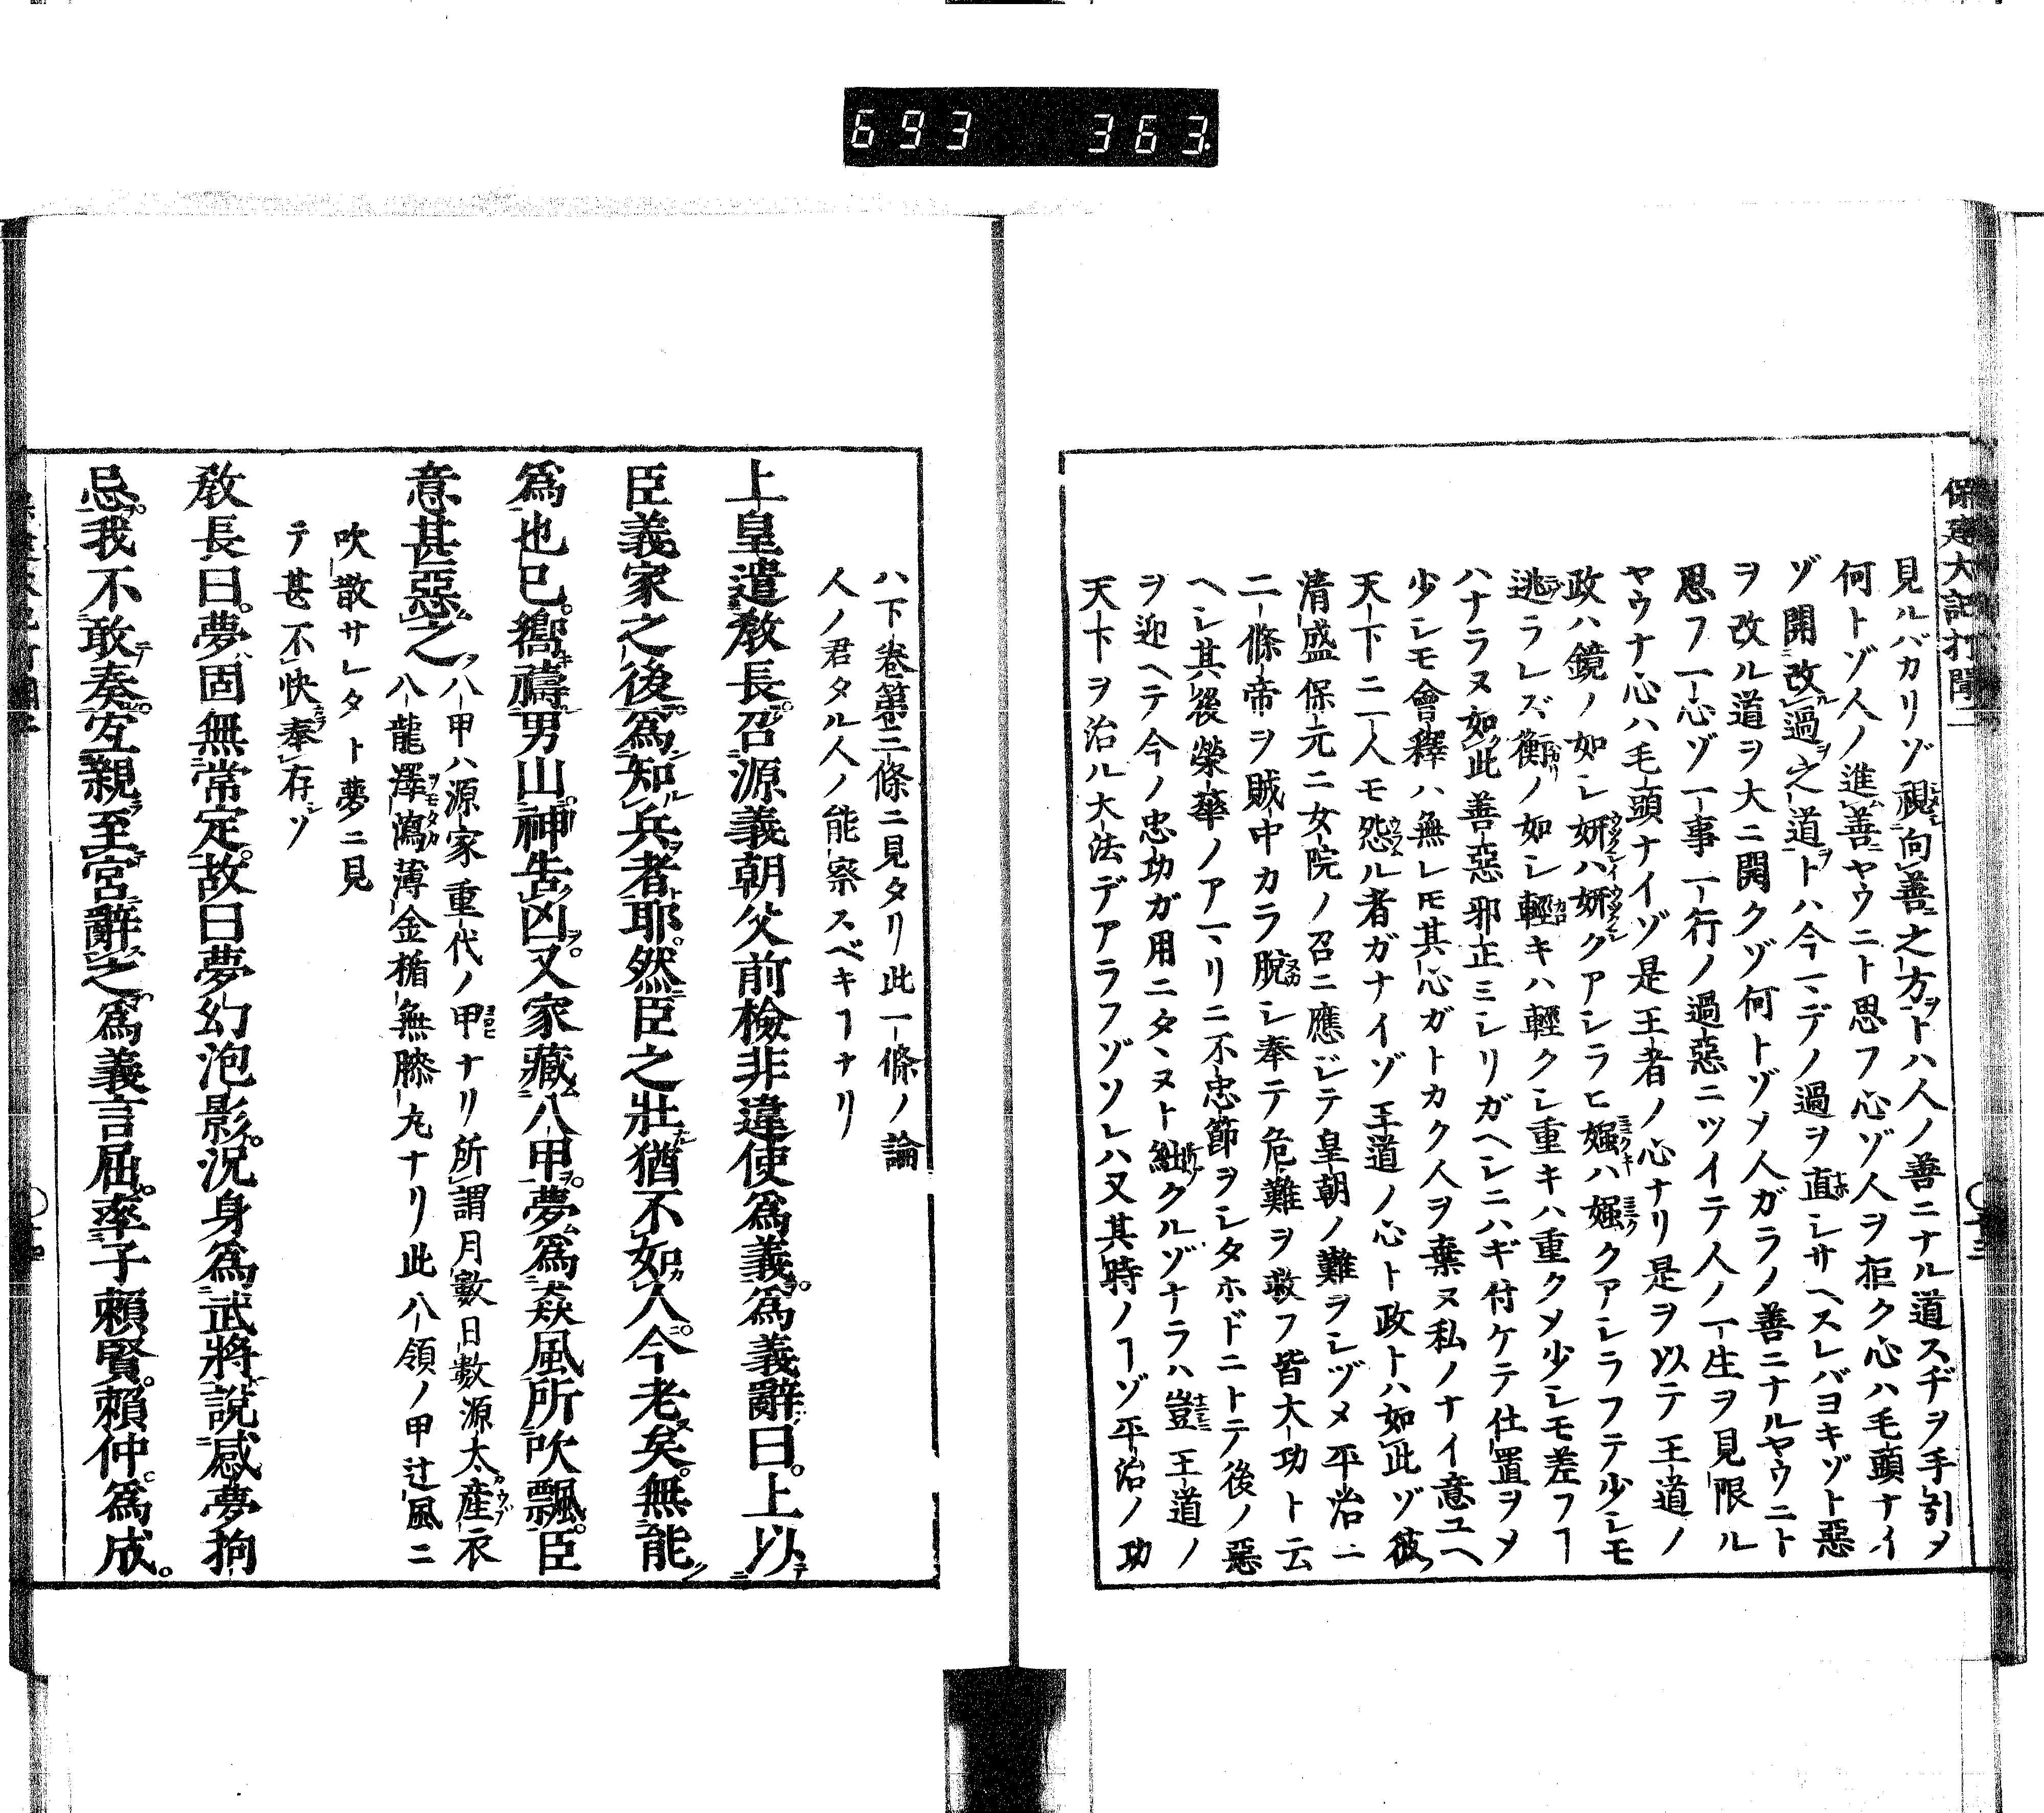 693 363
保建大記打聞一
見ルバカリゾ視向善之方ヲトハ人ノ善ニナル道スヂヲ手引メ
何トゾ人ノ進善ヤウニト思フ心ゾ人ヲ拒ク心ハ毛頭ナイ
ゾ開改過之道ヲトハ今一デノ過ヲ直シサヘスレバヨキゾト惡
ヲ改ル道ヲ大ニ開クゾ何トゾメ人ガラノ善ニナルヤウニト
思フ一心ゾ一事一行ノ過惡ニツイテ人ノ一生ヲ見限ル
ヤウナ心ハ毛頭ナイゾ是王者ノ心ナリ是ヲ以テ王道ノ
政ハ鏡ノ如シ妍ハ妍クアシラヒ媸ハ媸クアシラフテ少シモ
逃ラレズ衡ノ如シ輕キハ輕クシ重キハ重クメ少シモ差フヿ
ハナラヌ如此善惡邪正ミシリガヘシニハギ付ケテ仕置ヲメ
少シモ會釋ハ無レ𪜈其心ガトカク人ヲ棄ヌ私ノナイ意ユヘ
天下ニ一人モ怨ル者ガナイゾ王道ノ心ト政トハ如此ゾ彼
清盛保元ニ女院ノ召ニ應ジテ皇朝ノ難ヲシヅメ平治ニ
二條帝ヲ賊中カラ脫シ奉テ危難ヲ救フ皆大功ト云
ヘシ其後榮華ノアマリニ不忠節ヲシタホドニトテ後ノ惡
ヲ迎ヘテ今ノ忠功ガ用ニタヽヌト絀クルゾナラハ豈王道ノ
天下ヲ治ル大法デアラフゾソレハ又其時ノヿゾ平治ノ功
ハ下卷第三條ニ見タリ此一條ノ論
人ノ君タル人ノ能察スベキヿナリ
上皇遣教長召源義朝父前檢非違使爲義爲義辭曰上以
臣義家之後爲知兵者耶然臣之壯猶不如人今老矣無能
爲也已嚮禱男山神告凶又家藏八甲夢爲猋風所吹飄臣
意甚惡之
八甲ハ源家重代ノ甲ナリ所謂月數日數源太產衣
八龍澤瀉薄金楯無膝丸ナリ此八領ノ甲辻風ニ
吹散サレタト夢ニ見
テ甚不快奉存ゾ
敎長曰夢固無常定故曰夢幻泡影況身爲武將說感夢拘
忌我不敢奏宐親至宮辭之爲義言屈率子賴賢賴仲爲成